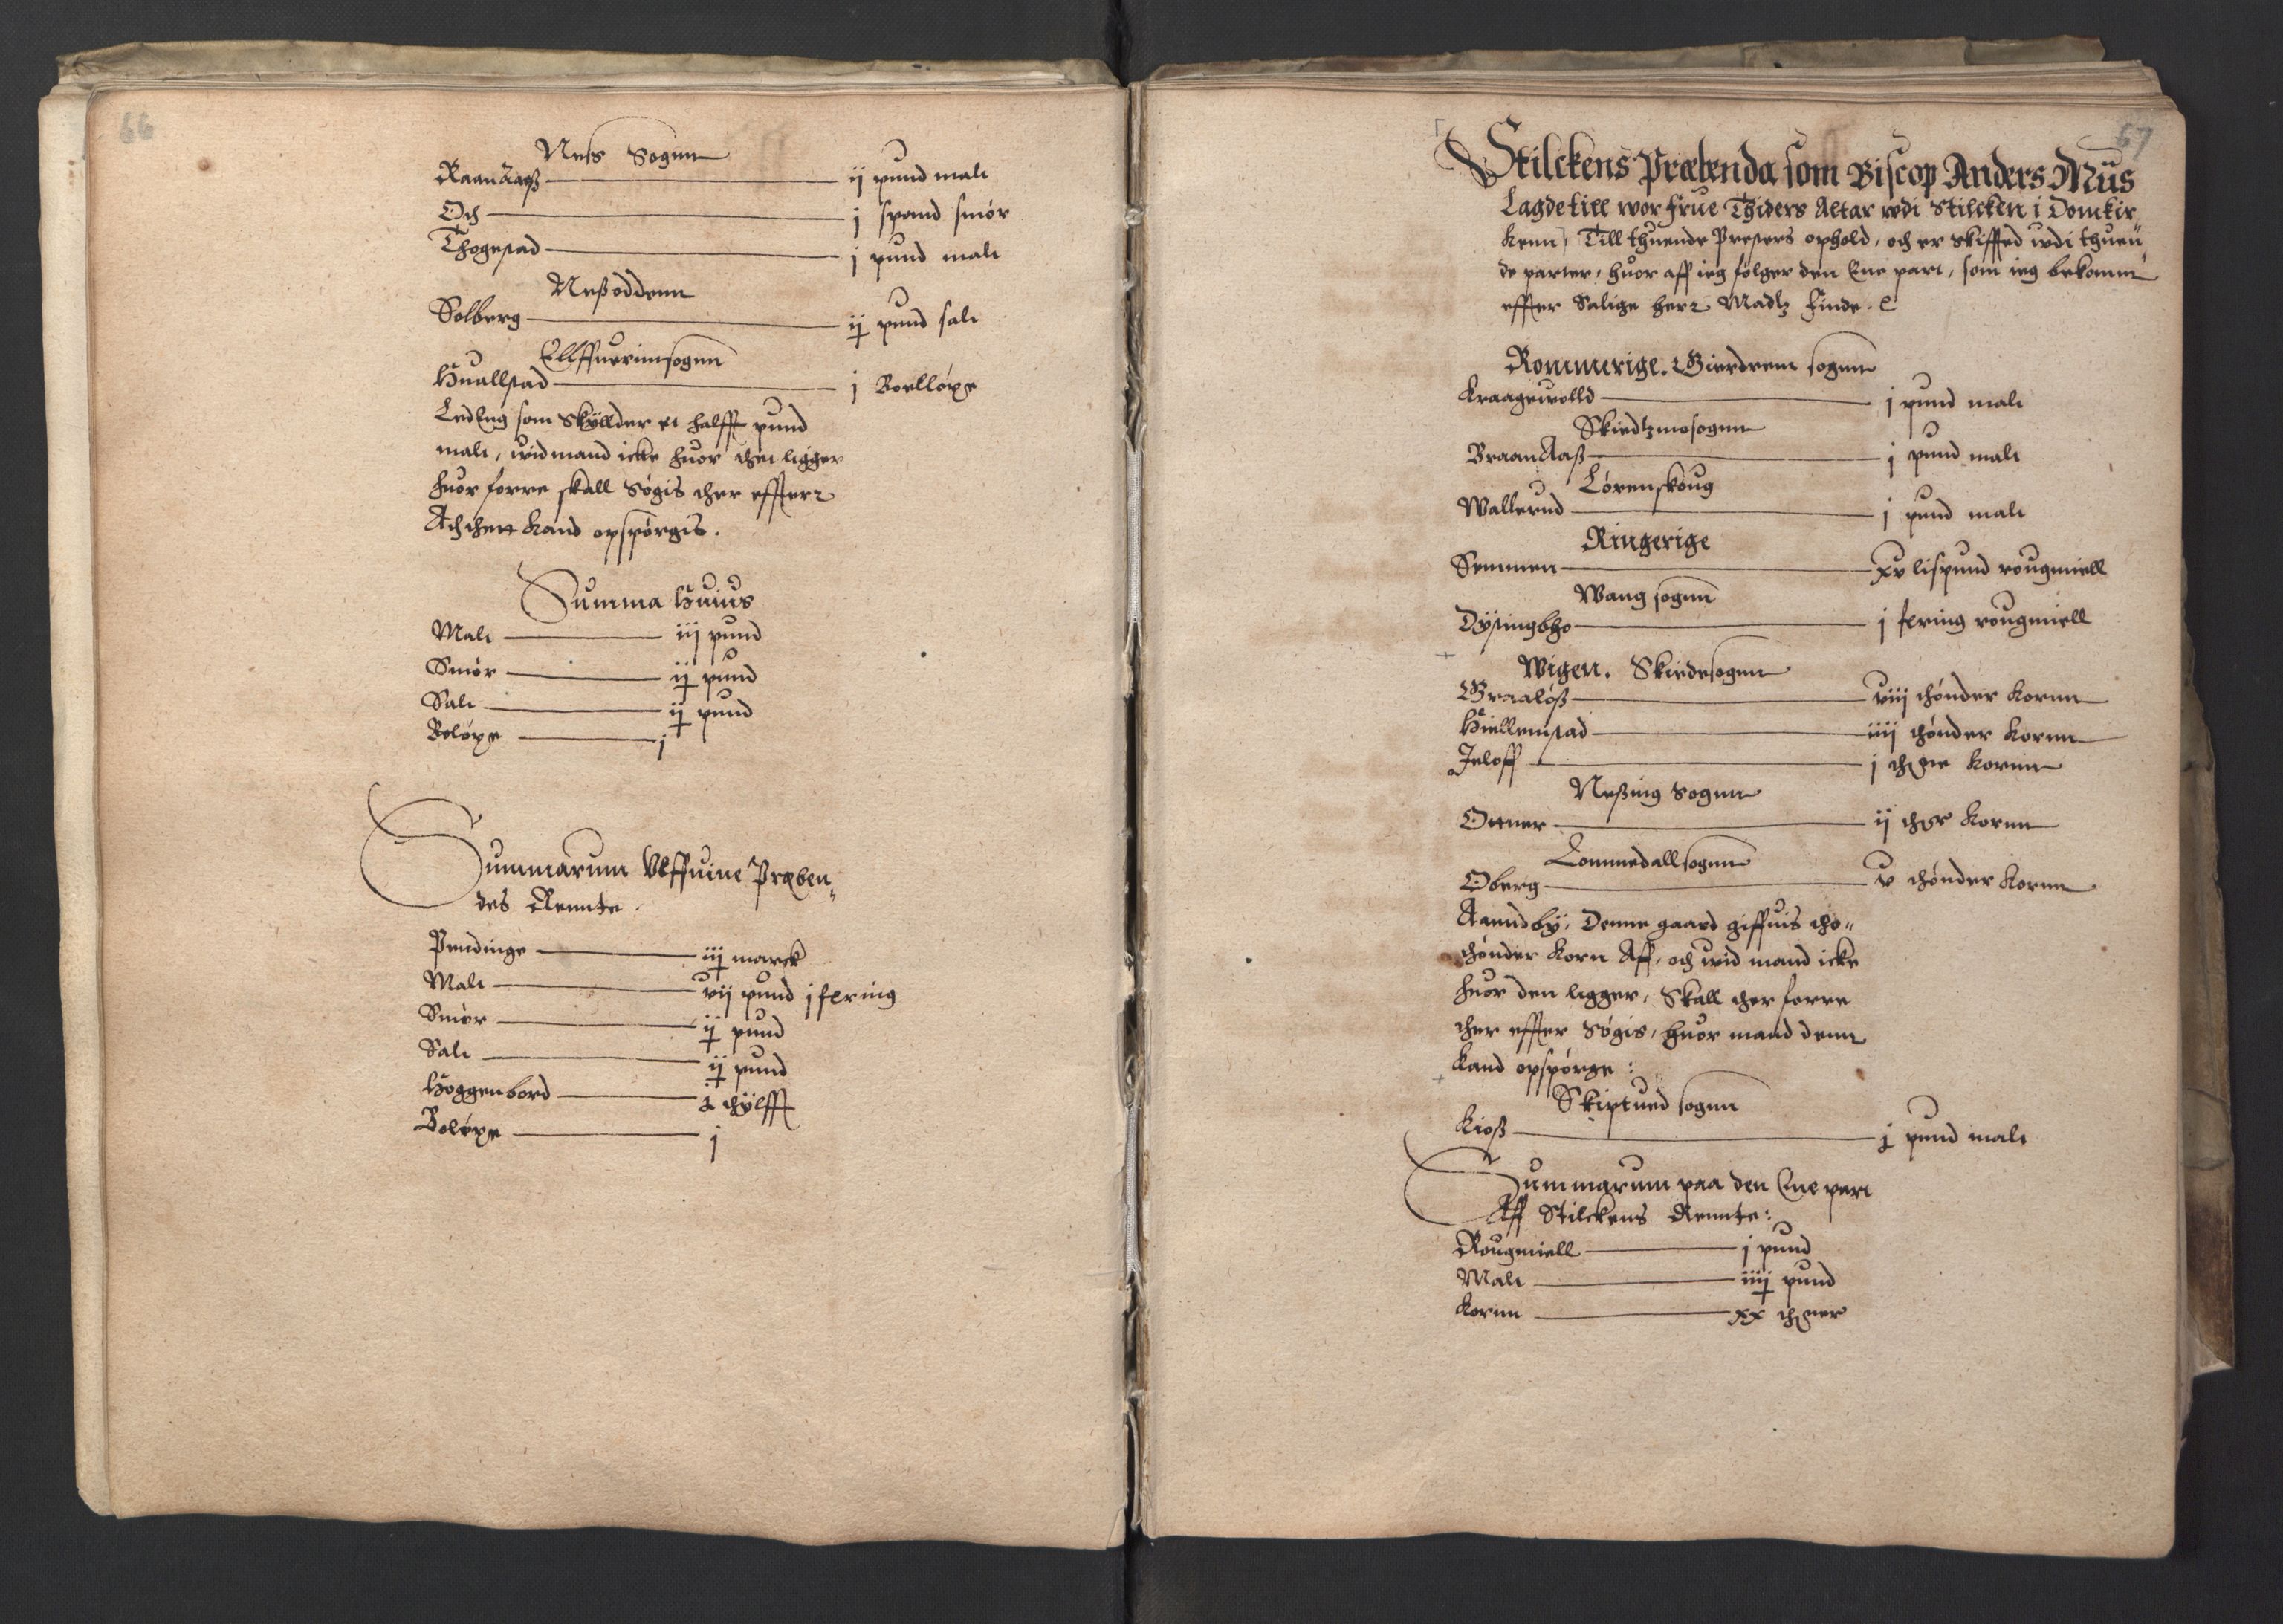 66
Ness Sognn
RaanAaß — ij pund malt
Och — j spand smør
Thogestad — j pund malt
Neßoddenn
Solberg — ij pund salt
Ellffuerimsognn
Huallstad — j Boelløxe
LedEng som Skÿllder et halfft pund
malt, wid mand icke huor thet ligger
huor forre skall Søgis ther effterr
At thett Kand opspørgis.
Summa Huius
Malt — iij pund
Smør — ij pund
Salt — ij pund
Boløxe — j
Summarum Vlffuine Præben„
des Rennte.
Pendinge — iij marck
Malt — vij pund j fering
Smør — ij pund
Salt — ij pund
Hoggenbord — j thÿlfft
Boløxe — j
67
Stilckens Præbenda som Biscop Anders Mus
Lagde till wor frue Thiders Altar wdi Stilcken i Domkir„
kenn, Till thuende Presters ophold, och er Skiffted wdi thuen„
de parter, huor aff ieg følger den Ene part, som ieg bekomm
effter Salige herr Madtz finde.
Rommerige. Gierdrem sognn
Kraagewolld — j pund malt
Skiedtzmosognn
BraanAaß — j pund malt
Lørenskoug
Wallerud — j pund malt
Ringerige
Semmen — xv lispund rougmiell
Wang sognn
Dÿstingbho — j fering rougmiell
Wigen. Skiedesognn
Graaløß — viij thønder Kornn
Hiellemstad — iiij thønder Kornn
Jeloff — j thøne Kornn
Neßing Sognn
Ottner — ij thør Kornn
Lommedallsognn
Oberg — v thønder Kornn
Aamndbÿ, Denne gaard giffuis tho„
thønder Korn Aff, och wid mand icke
huor den ligger, Skall ther forre
ther effter Søgis, huor mand denn
Kand opspørge:
Skiptued sognn
Kioß — j pund malt
Summarum paa den Ene part
Aff Stilckens Rennte:
Rougmiell — j pund
Malt — iiij pund
Kornn — xx thøner